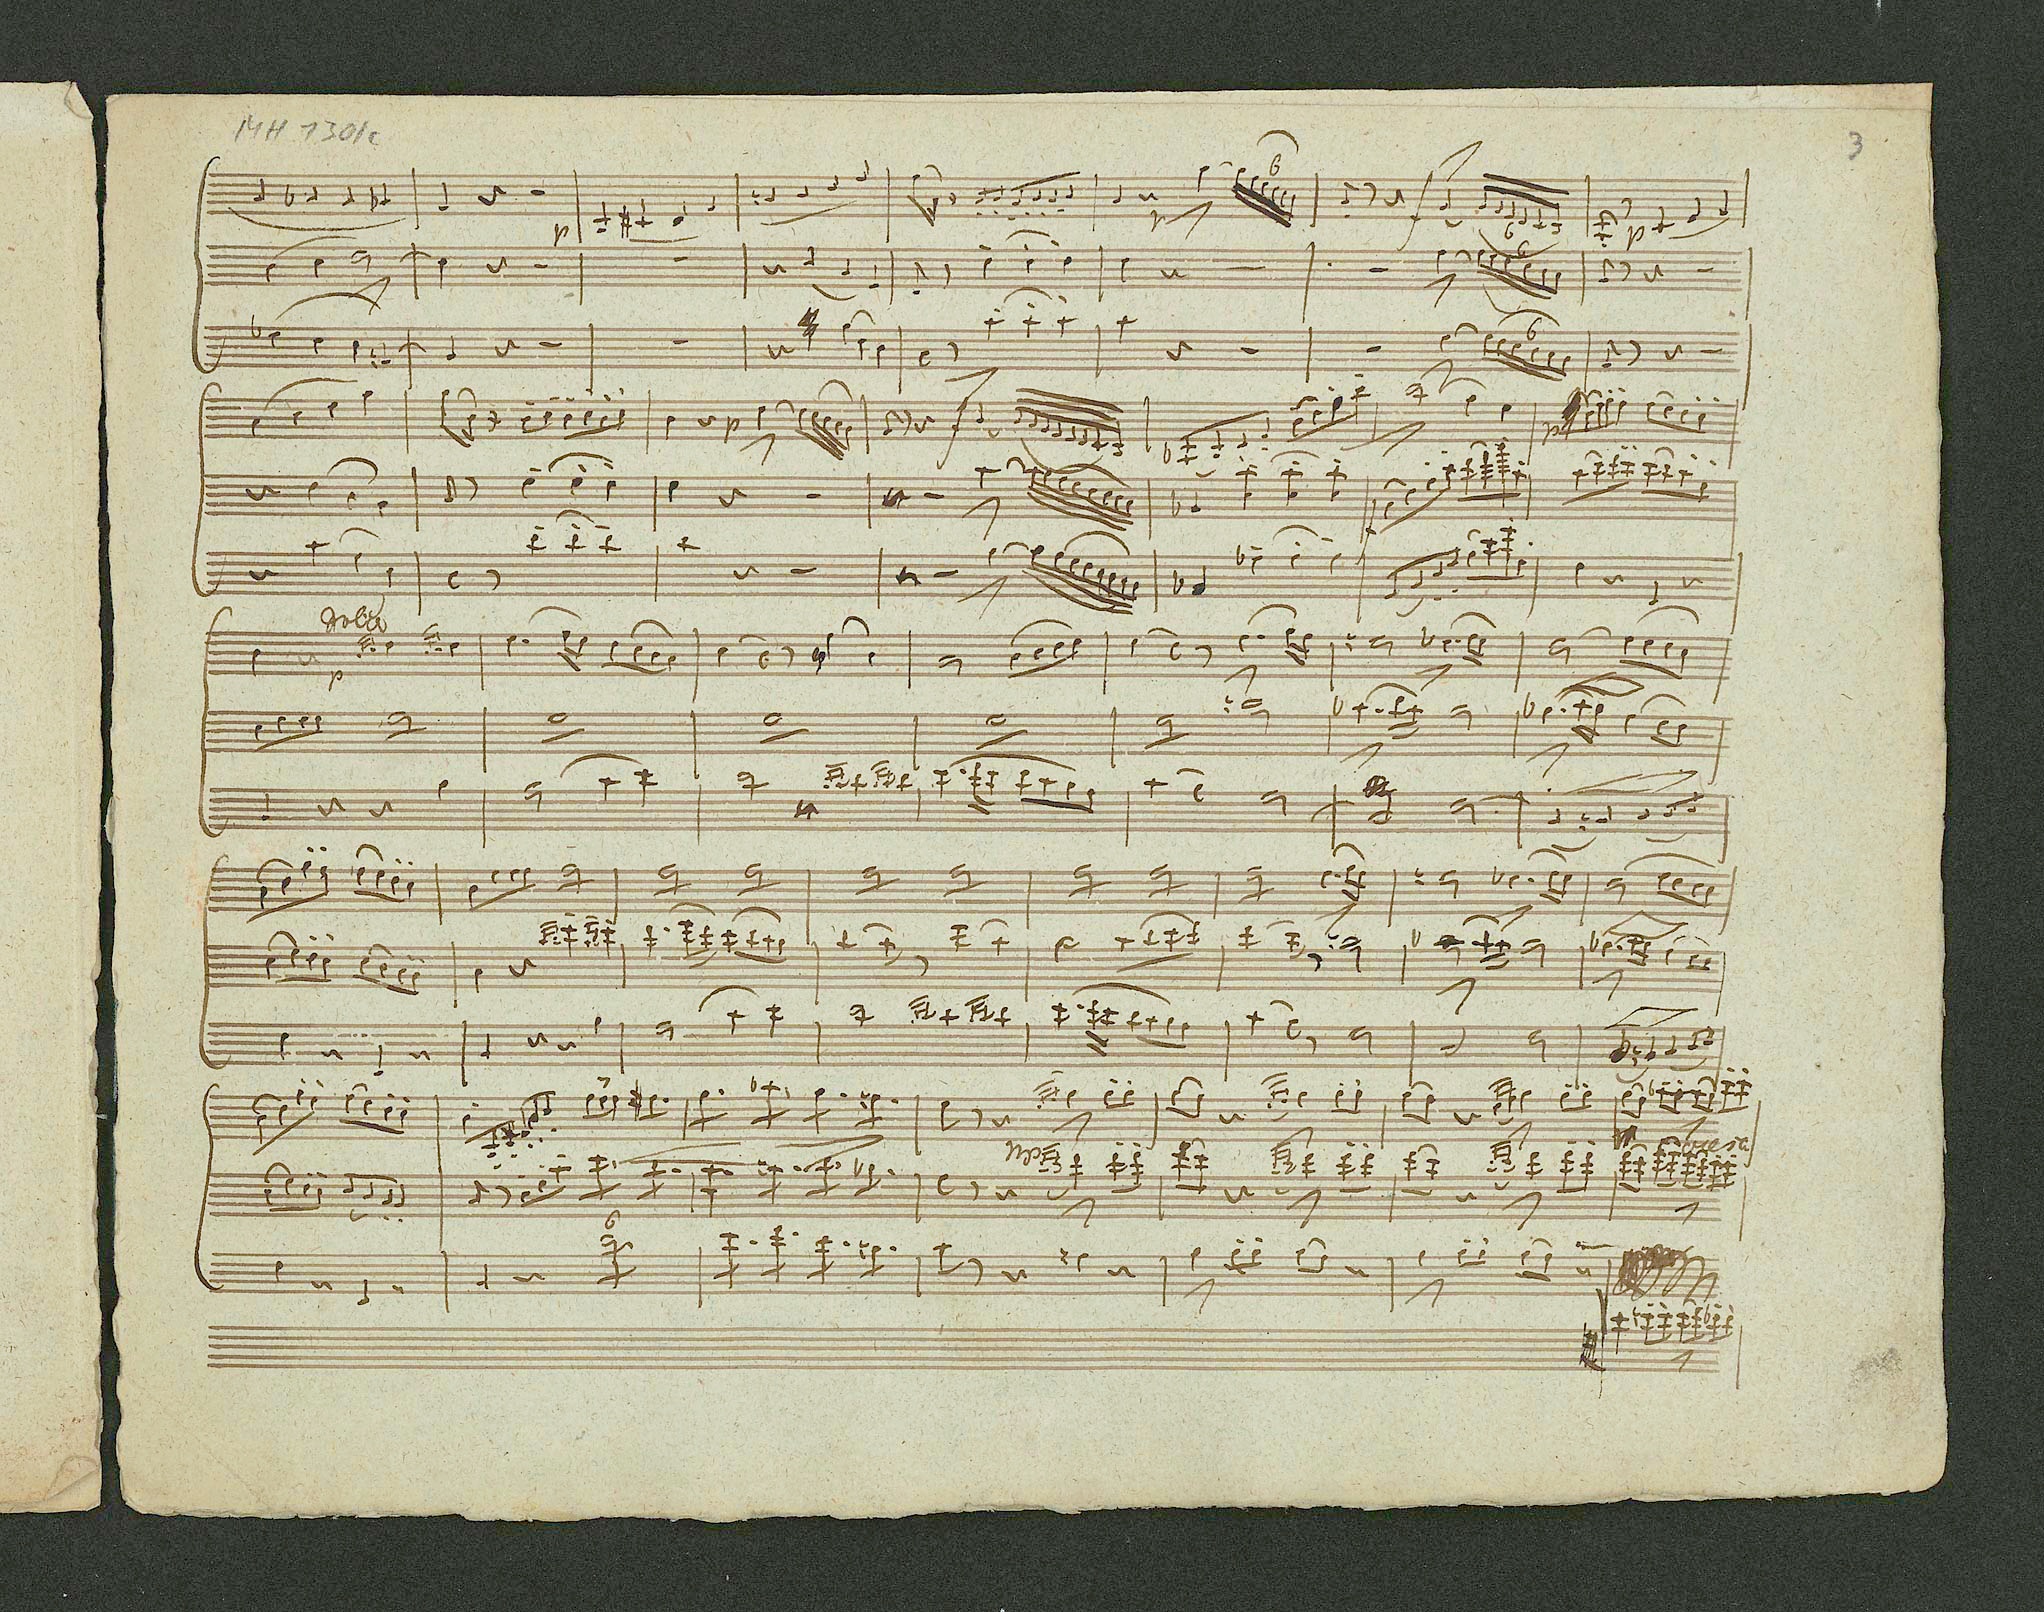 MH 1301c
3
p
6
p
f
6
p
6
6
p
f
p
dolce
p
6
cresc